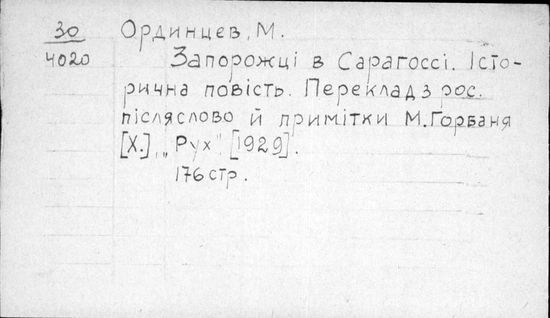 30
4020
Ординцев, М.
Запорожці в Сарагоссі. Істо-
рична повість. Переклад з рос.
післяслово й примітки М. Горбаня
[Х.], „Рух“ [1929].
176 стр.